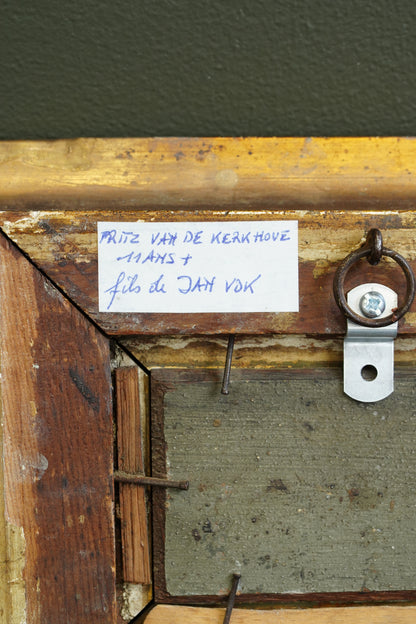 FRITZ VAN DE KERKHOVE
11 ANS +
fils de JAN VDK